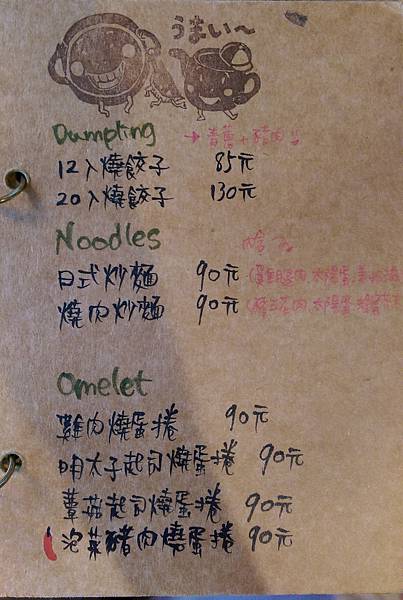 うまい~
Dumpling → 青蔥+豬肉
12入燒餃子 85元
20入燒餃子 130元
Noodles
日式炒麵 90元 (雞腿肉.太陽蛋.
燒肉炒麵 90元 肉.太陽蛋.
Omelet
雞肉燒蛋捲 90元
明太子起司燒蛋捲 90元
蕈菇起司燒蛋捲 90元
泡菜豬肉燒蛋捲 90元